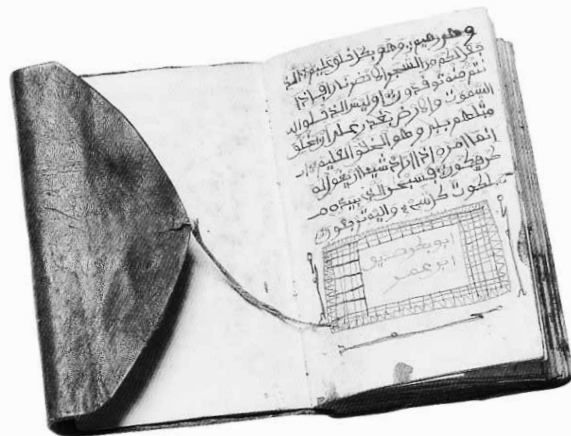 وهو رميم وهو بكل خلق عليم الذ
جعل لكم من الشجر الاخضر نارا فاذا
انتم منه توقدون اوليس الذ خلق ال
السموت والارض بقدر على ان يخلق
مثلهم بلى وهو الخلق العليم
انما امره اذا اراد شيئا ان يقول له
كن فيكون فسبحن الذ بيده
ملكوت كل شىء واليه ترجعون
ابوبكر صديق
عمر